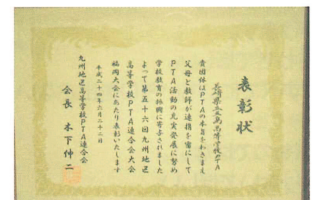 表彰状
長崎県立五島高等学校PTA
貴団体はPTAの本旨をわきまえ
父母と教師が連携を密にして
PTA活動の充実発展に努め
学校教育の振興に寄与されました
よって第五十六回九州地区
高等学校PTA連合会大会
福岡大会にあたり表彰いたします
平成二十四年六月二十二日
九州地区高等学校PTA連合会
会長 木下伸二